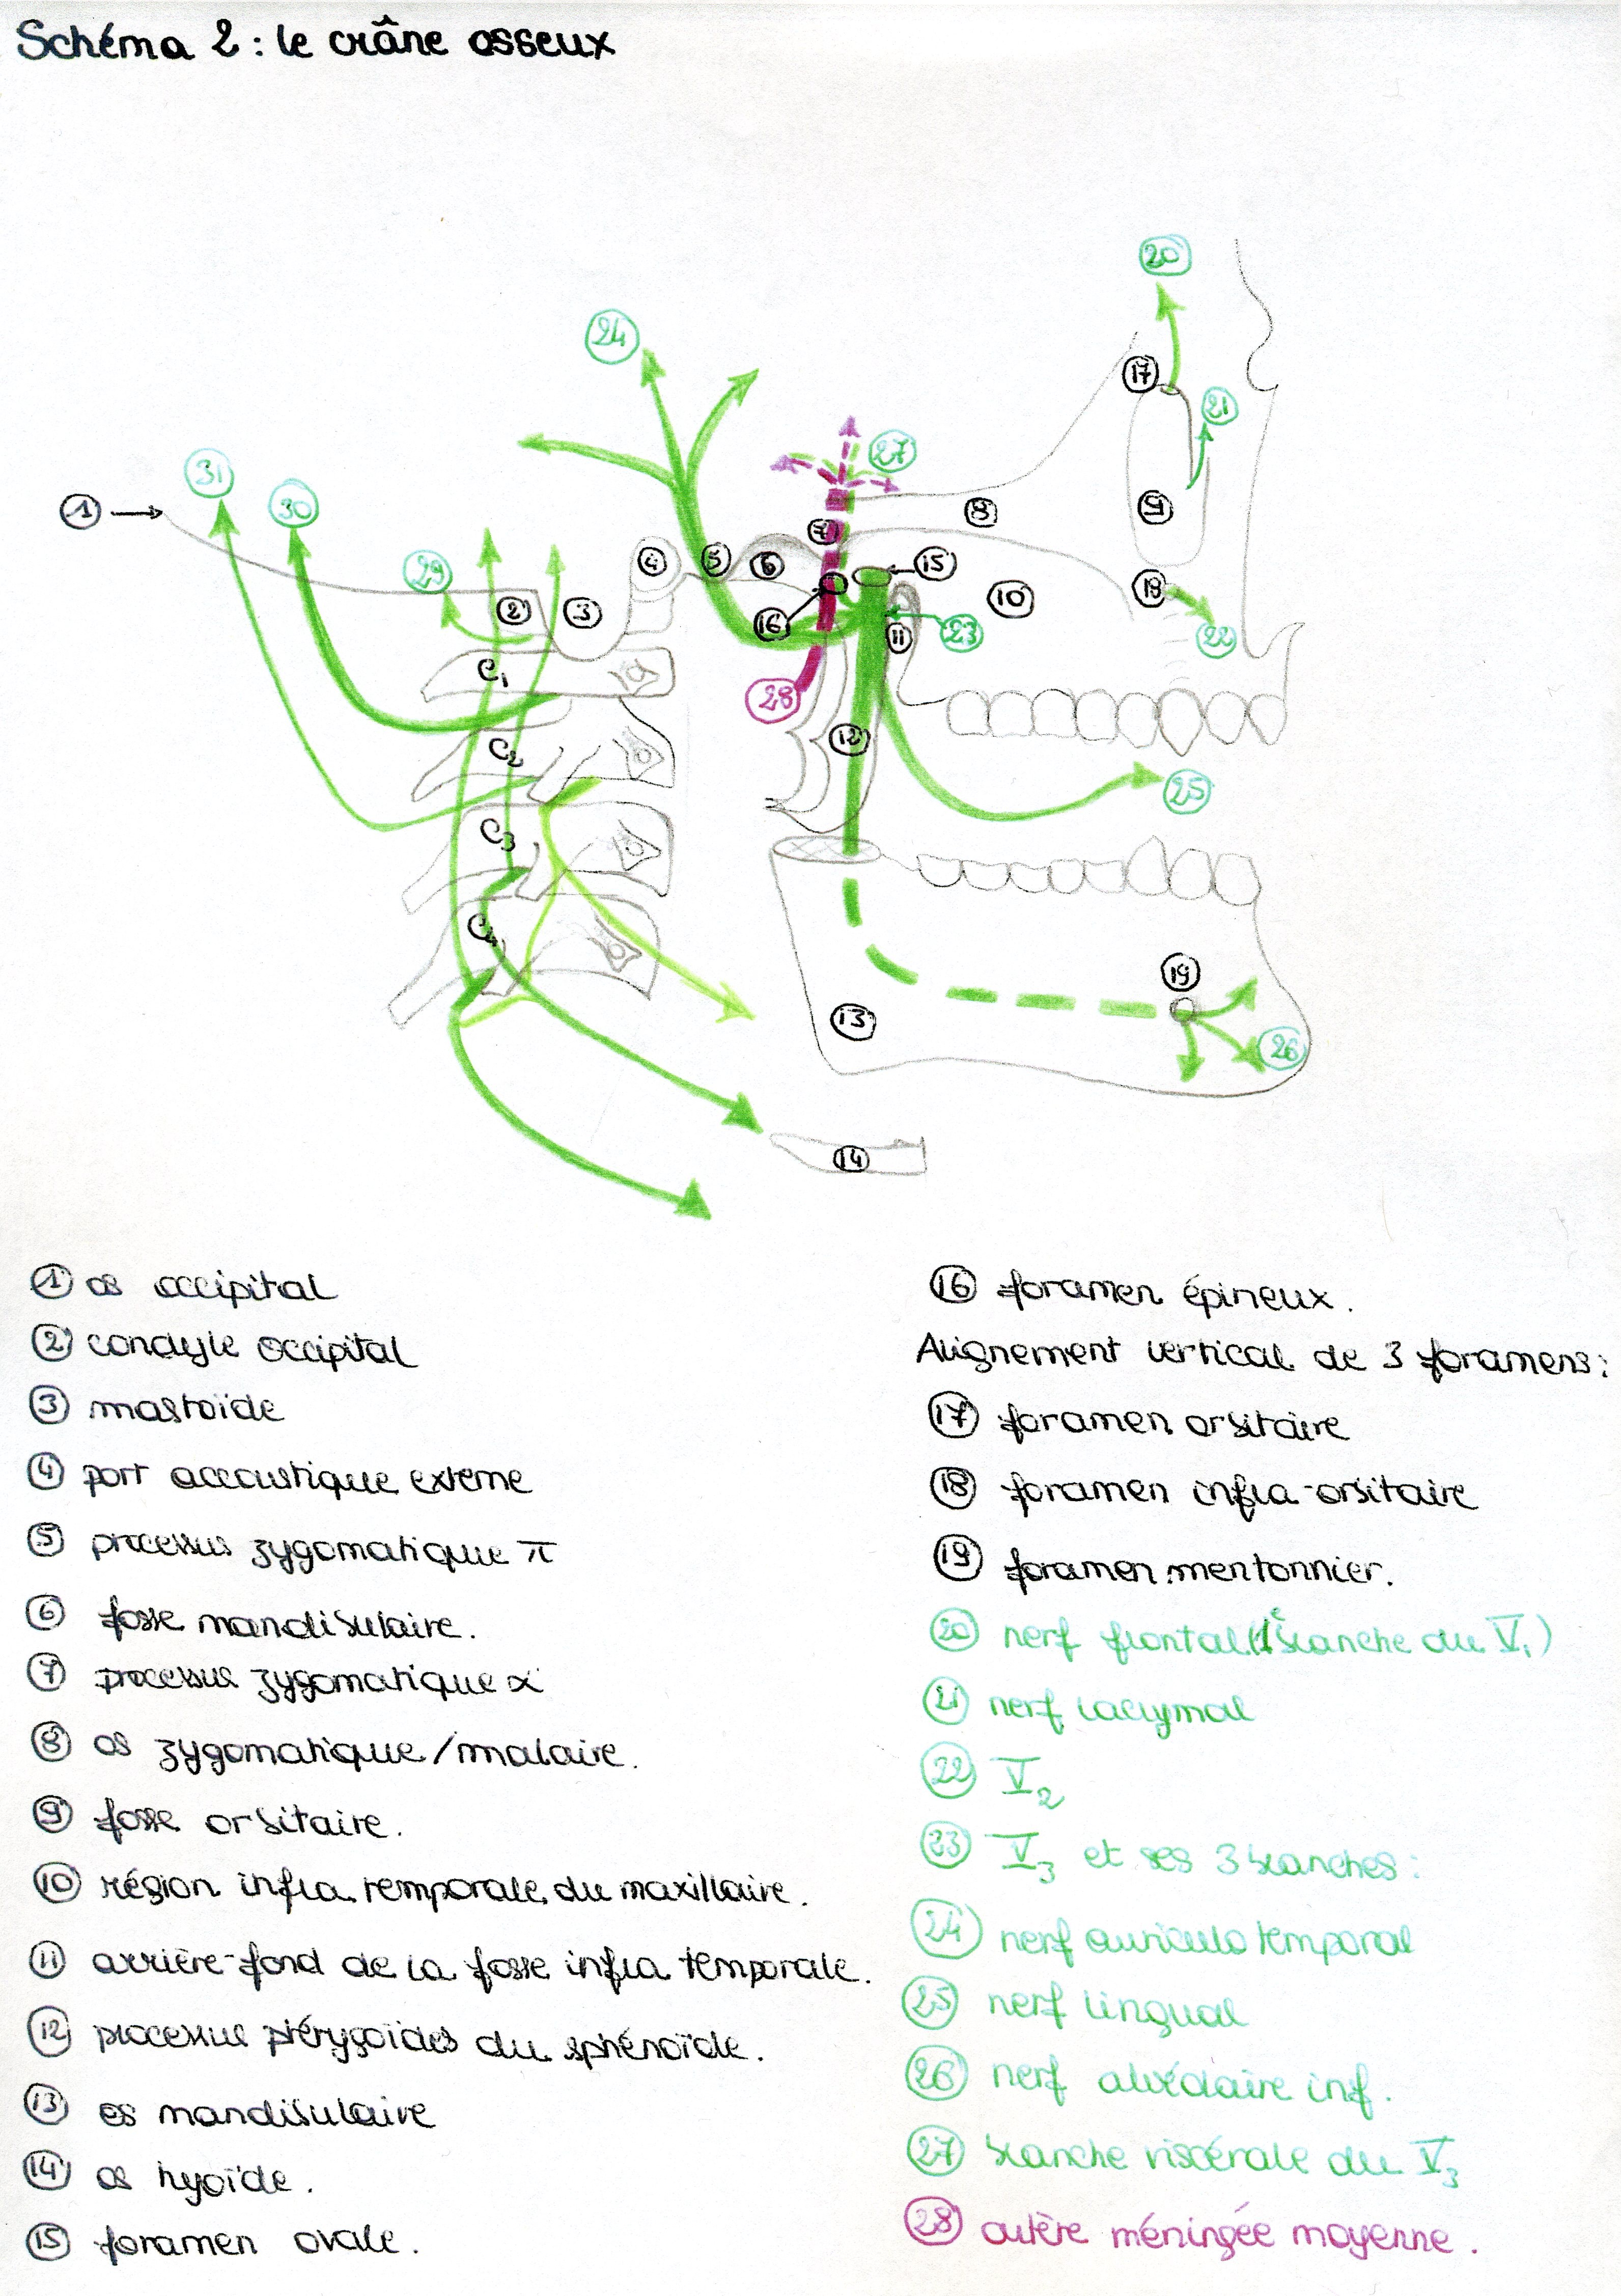 Schéma 2 : le crâne osseux
20
24
17
21
27
31
1
30
9
8
7
4
5
6
15
29
18
10
2
3
16
11
23
22
C1
28
12
C2
25
C3
C4
19
13
26
14
1 os occipital
2 condyle occipital
3 mastoïde
4 port accoustique externe
5 processus zygomatique π
6 fosse mandibulaire.
7 processus zygomatique α
8 os zygomatique/malaire.
9 fosse orbitaire.
10 région infra temporale du maxillaire.
11 arrière-fond de la fosse infra temporale.
12 processus ptérygoïdes du sphénoïde.
13 os mandibulaire
14 os hyoïde.
15 foramen ovale.
16 foramen épineux.
Alignement vertical de 3 foramens :
17 foramen orbitaire
18 foramen infra-orbitaire
19 foramen mentonnier.
20 nerf frontal (1è branche du V1)
21 nerf lacrymal
22 V2
23 V3 et ses 3 branches :
24 nerf auriculo temporal
25 nerf lingual
26 nerf alvéolaire inf.
27 branche viscérale du V3
28 artère méningée moyenne.